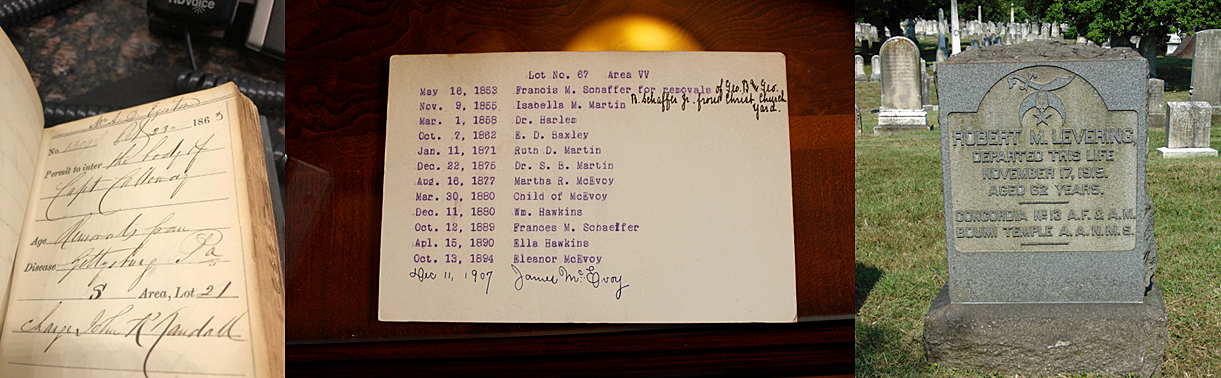 HDvoice
Mr A. C.
Oct 23" 1863
No.
Permit to inter the body of
Capt Calloway
Age Removals from
Disease Gettysburg Pa
S Area, Lot 21
Charge John K Randall
Lot No. 67 Area VV
May 16, 1853 Francis M. Schaffer for removals of Geo. B & Geo.
B. Schaffer Jr. from Christ Church
yard.
Nov. 9, 1855 Isabella M. Martin
Mar. 1, 1858 Dr. Harlem
Oct. 2, 1862 E. D. Baxley
Jan. 11, 1871 Ruth D. Martin
Dec. 22, 1875 Dr. S. B. Martin
Aug. 16, 1877 Martha R. McEvoy
Mar. 30, 1880 Child of McEvoy
Dec. 11, 1880 Wm. Hawkins
Oct. 12, 1889 Frances M. Schaeffer
Apl. 15, 1890 Ella Hawkins
Oct. 13, 1894 Eleanor McEvoy
Dec 11, 1907 James McEvoy
ROBERT M. LEVERING,
DEPARTED THIS LIFE
NOVEMBER 17, 1915.
AGED 62 YEARS.
CONCORDIA No 13 A.F. & A.M.
BOUMI TEMPLE A.A.N.M.S.